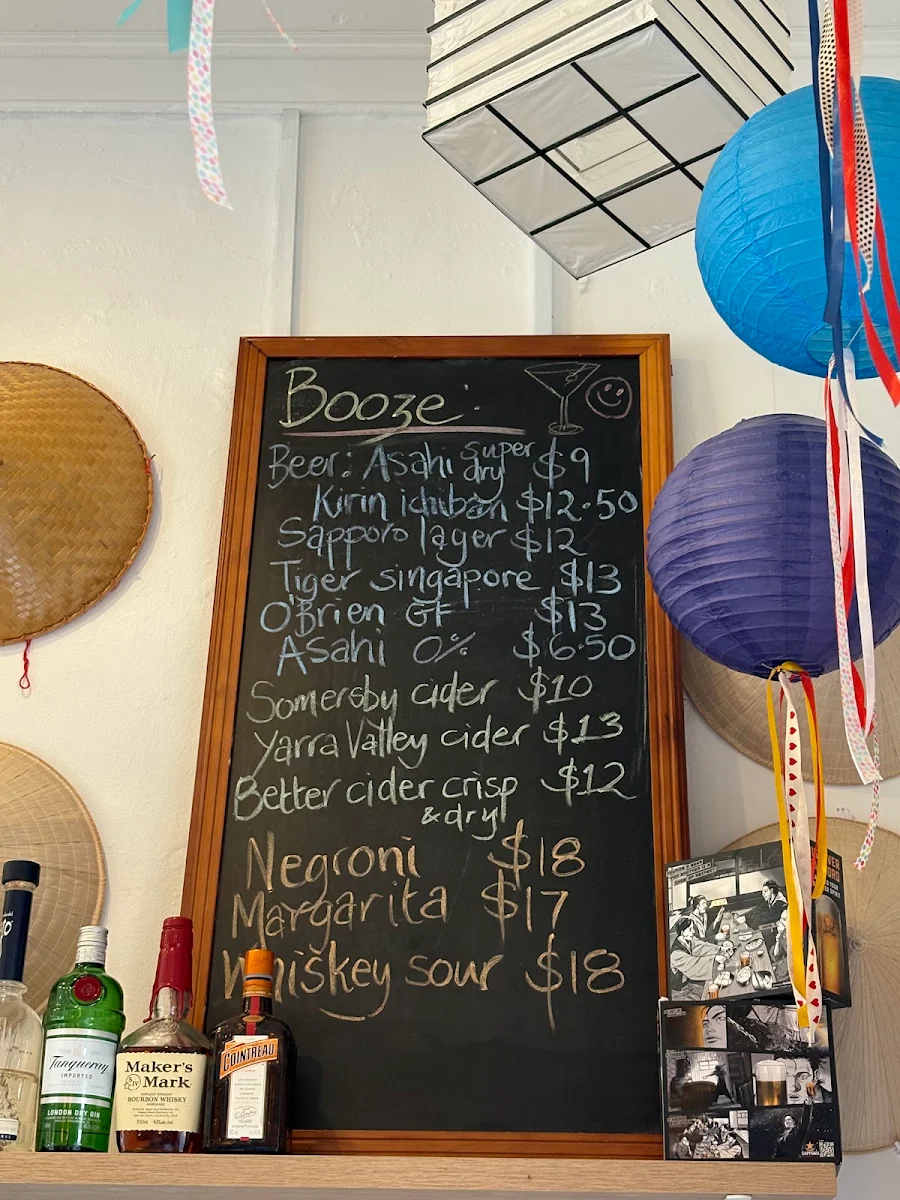 Booze:
Beer: Asahi super dry $9
Kirin ichiban $12.50
Sapporo lager $12
Tiger singapore $13
O'Brien GF $13
Asahi 0% $6.50
Somersby cider $10
Yarra Valley cider $13
Better cider crisp $12
& dry!
Negroni $18
Margarita $17
Whiskey sour $18
Tanqueray
IMPORTED
LONDON DRY GIN
Maker's
SIV Mark
BOURBON WHISKY
COINTREAU